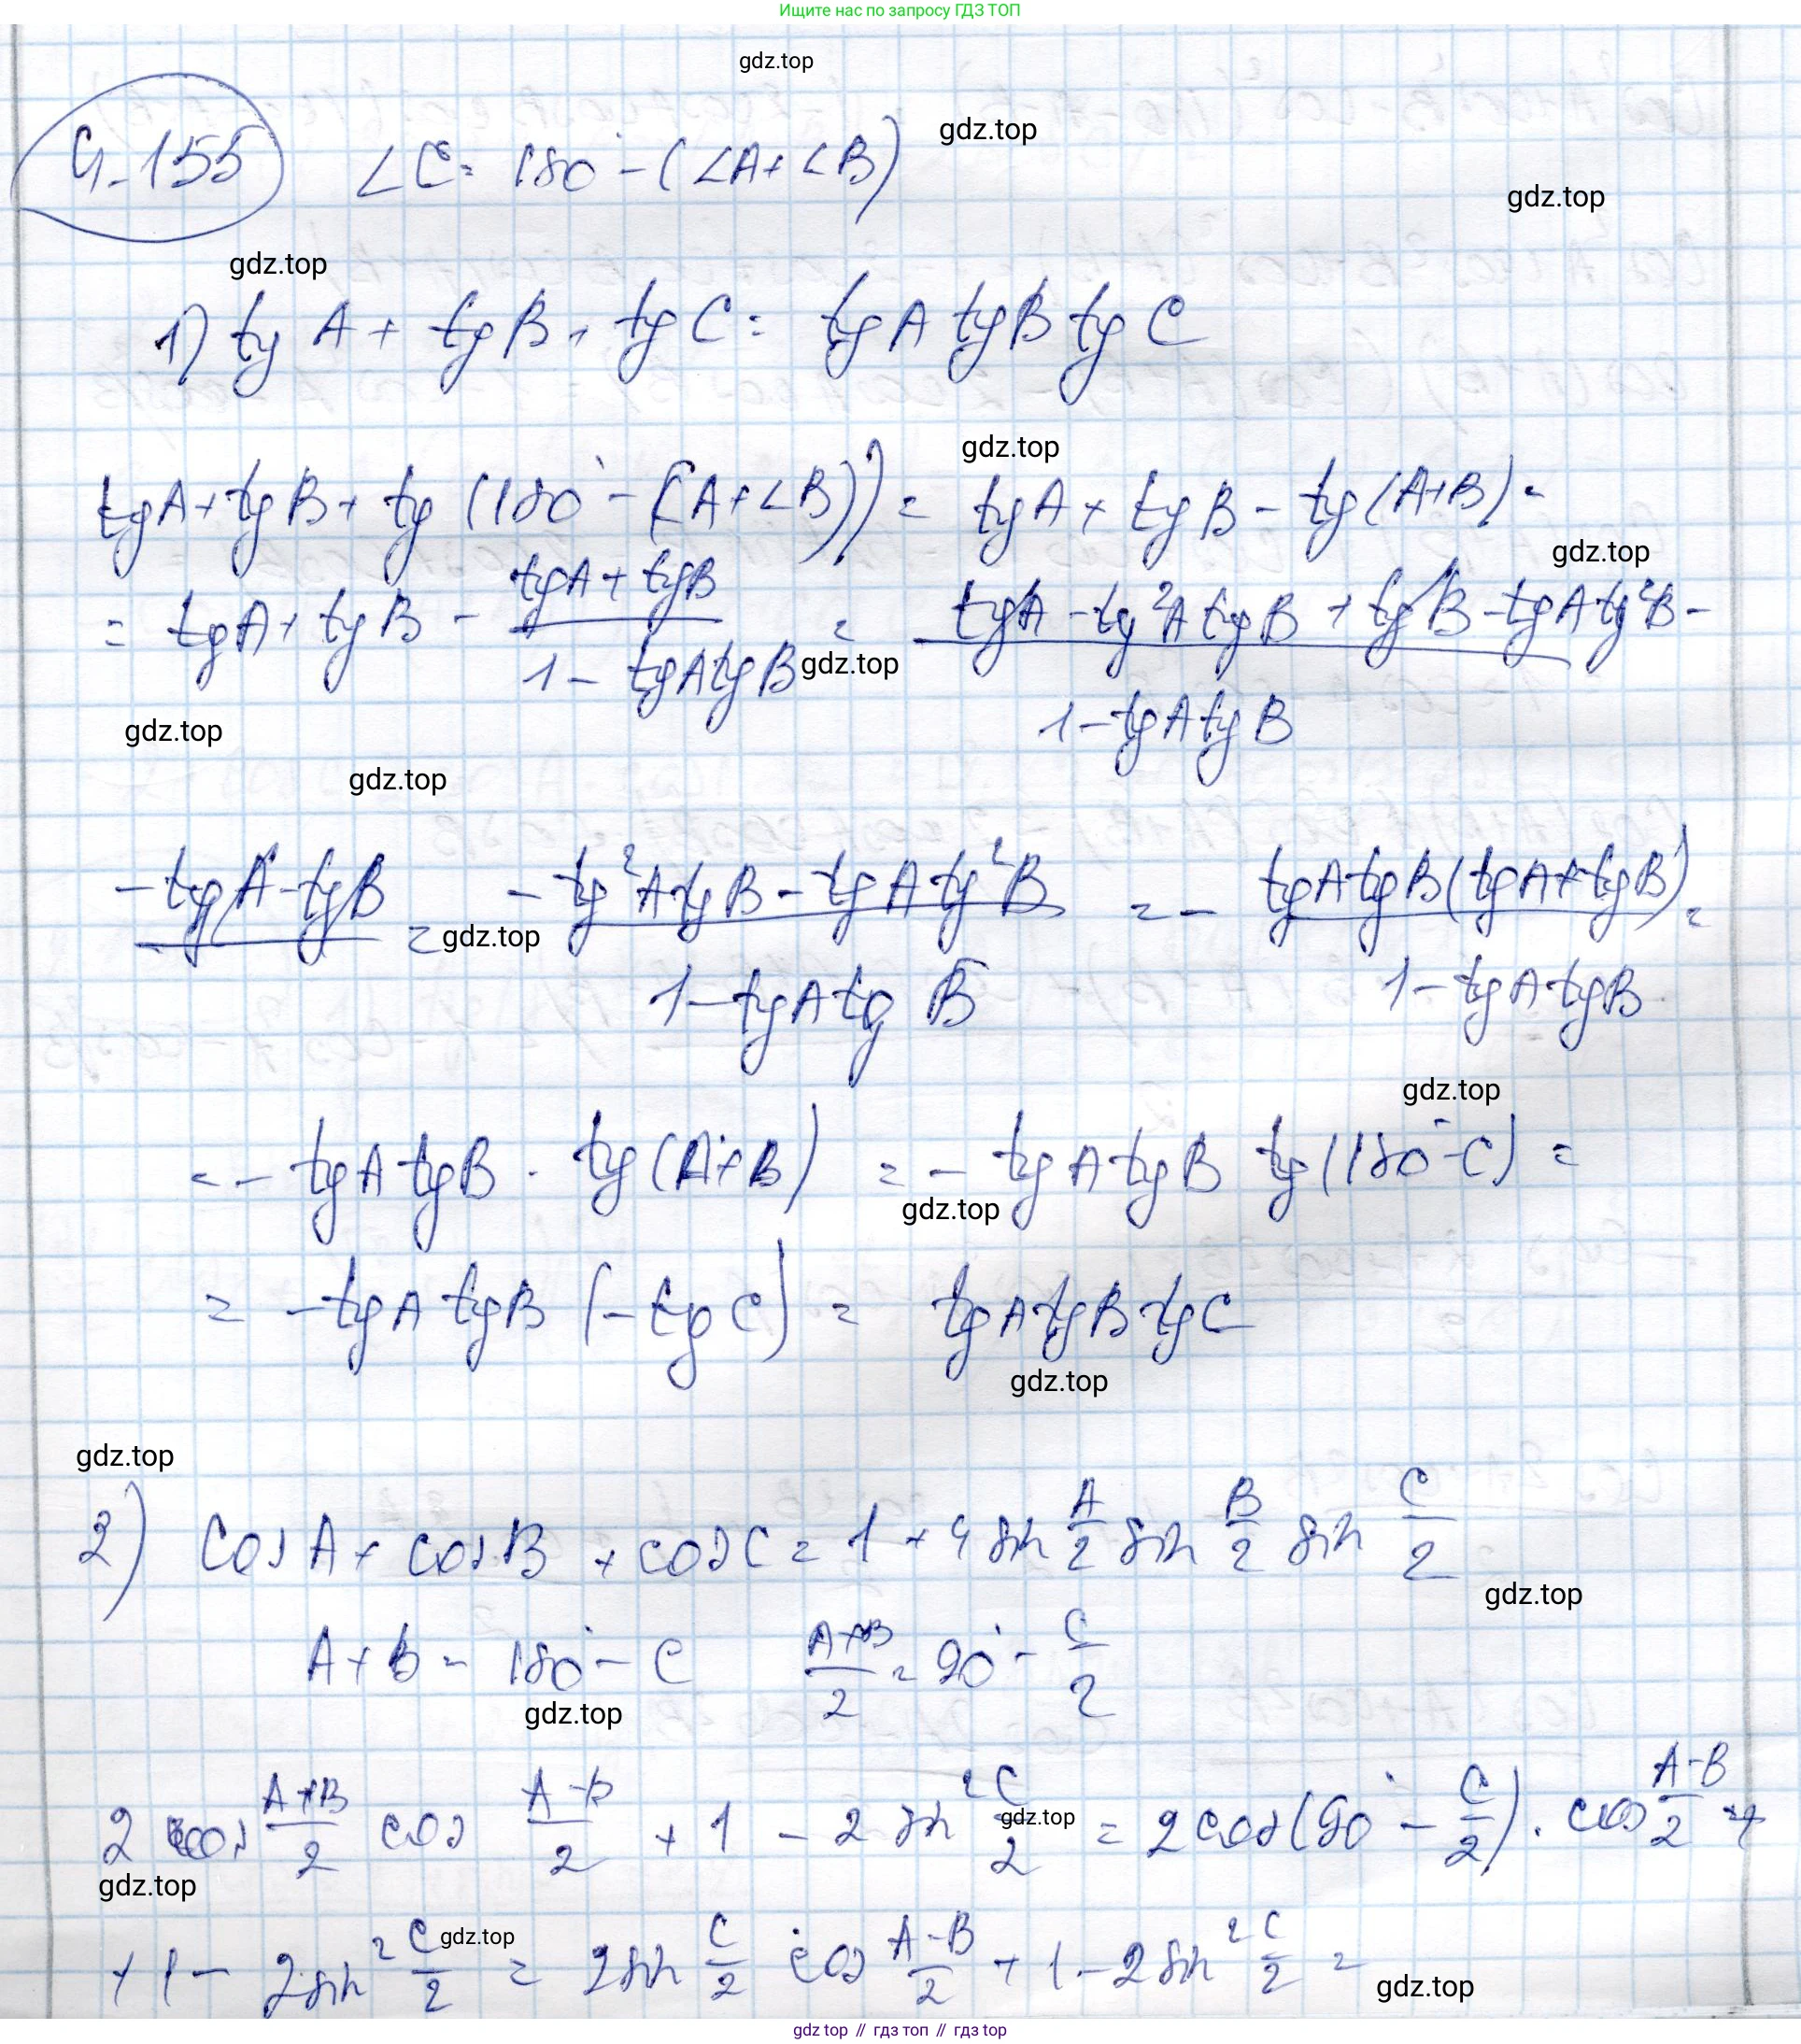 Ищите нас по запросу ГДЗ ТОП
gdz.top
Ч-155 ∠C = 180° - (∠A + ∠B)
gdz.top
gdz.top
gdz.top
1) tg A + tg B + tg C = tg A tg B tg C
gdz.top
tgA + tgB + tg (180° - (∠A + ∠B)) = tgA + tgB - tg(A+B) =
gdz.top
= tgA + tgB - (tgA + tgB)/(1 - tgA tgB) = (tgA - tg²A tgB + tgB - tgA tg²B -)/(1 - tgA tgB)
gdz.top
gdz.top
gdz.top
- tgA - tgB = (- tg²A tgB - tgA tg²B)/(1 - tgA tg B) = - (tgA tgB (tgA + tgB))/(1 - tgA tgB) =
gdz.top
gdz.top
= - tgA tgB · tg(A+B) = - tgA tgB tg(180° - C) =
gdz.top
= - tgA tgB (- tg C) = tgA tgB tgC
gdz.top
gdz.top
2) cos A + cos B + cos C = 1 + 4 sin A/2 sin B/2 sin C/2
gdz.top
A + B = 180° - C (A+B)/2 = 90° - C/2
gdz.top
2 cos (A+B)/2 cos (A-B)/2 + 1 - 2 sin² C/2 = 2 cos(90° - C/2) · cos (A-B)/2 +
gdz.top
gdz.top
+ 1 - 2 sin² C/2 = 2 sin C/2 cos (A-B)/2 + 1 - 2 sin² C/2 =
gdz.top
gdz.top
gdz top // гдз топ // gdz top